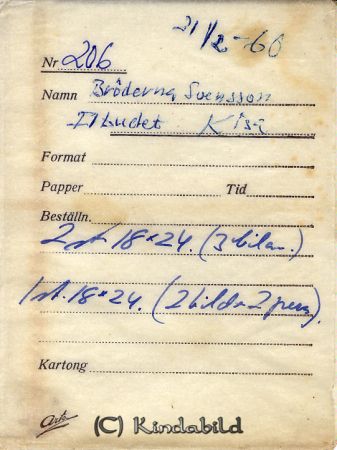 21/2-66
Nr 206
Namn Bröderna Svensson
Ilbudet Kisa
Format
Papper Tid
Beställn.
2 st 18*24. (3 bilar.)
1 st. 18*24. (2 bilda 2 pers).
Kartong
(C) Kindabild